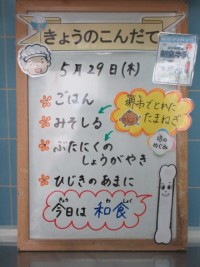 きょうのこんだて
5月29日(木)
ごはん
みそしる
ぶたにくの
しょうがやき
ひじきのあまに
堺市でとれた
たまねぎ
今日は和食
きょう
わしょく